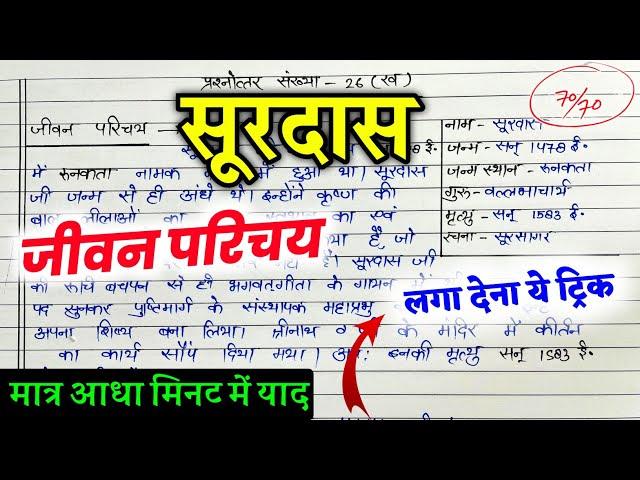 प्रश्नोत्तर संख्या - 26 (ख)
70/70
सूरदास
जीवन परिचय -
नाम - सूरदास
जन्म - सन् 1478 ई.
जन्म स्थान - रुनकता
गुरु - वल्लभाचार्य
मृत्यु - सन् 1583 ई.
रचना - सूरसागर
में रुनकता नामक में हुआ था। सूरदास
जी जन्म से ही अंधे थे। इन्होंने कृष्ण की
का एवं
है, जो
जीवन परिचय
है। सूरदास जी
की रुचि बचपन से ही भगवतगीता के गायन में
पद सुनकर पुष्टिमार्ग के संस्थापक महाप्रभु
अपना शिष्य बना लिया। श्रीनाथ के मंदिर में कीर्तन
का कार्य सौंप दिया गया। इनकी मृत्यु सन् 1583 ई.
लगा देना ये ट्रिक
मात्र आधा मिनट में याद